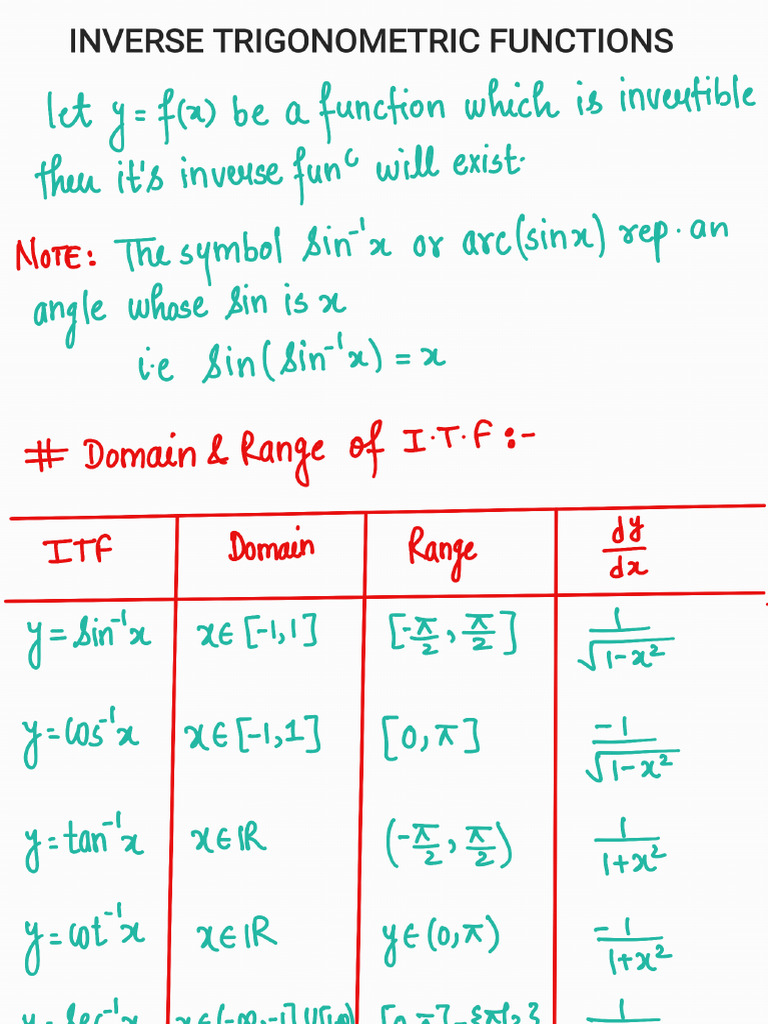 INVERSE TRIGONOMETRIC FUNCTIONS
let y = f(x) be a function which is invertible
then it's inverse func will exist.
NOTE: The symbol sin⁻¹x or arc(sinx) rep. an
angle whose sin is x
i.e sin(sin⁻¹x) = x
# Domain & Range of I.T.F :-
ITF Domain Range dy/dx
y = sin⁻¹x x∈[-1,1] [-π/2, π/2] 1/√(1-x²)
y = cos⁻¹x x∈[-1,1] [0,π] -1/√(1-x²)
y = tan⁻¹x x∈ℝ (-π/2, π/2) 1/(1+x²)
y = cot⁻¹x x∈ℝ y∈(0,π) -1/(1+x²)
y = sec⁻¹x x∈(-∞,-1]∪[1,∞) [0,π]-{π/2}